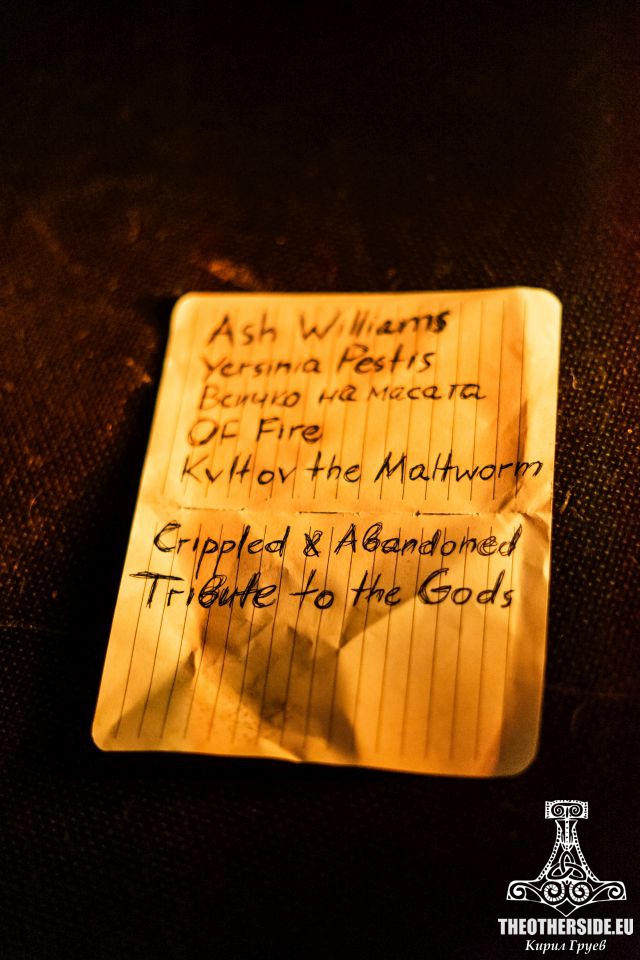 Ash Williams
Yersinia Pestis
Всичко на масата
OF Fire
Kvlt ov the Maltworm
Crippled & Abandoned
Tribute to the Gods
THEOTHERSIDE.EU
Кирил Груев